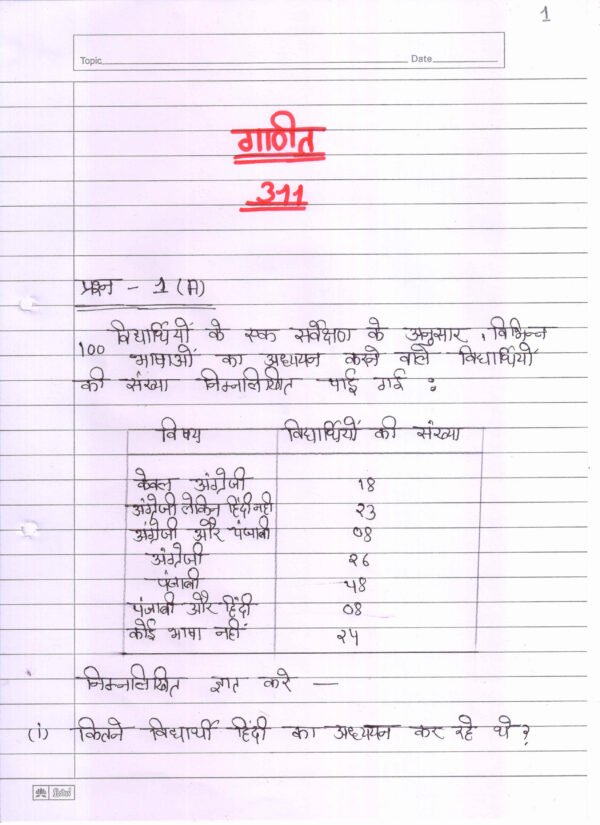 1
Topic Date
गणित
311
प्रश्न - 1 (A)
विद्यार्थियों के एक सर्वेक्षण के अनुसार, विभिन्न
100 भाषाओं का अध्ययन करने वाले विद्यार्थियों
की संख्या निम्नलिखित पाई गई :
विषय विद्यार्थियों की संख्या
केवल अंग्रेजी 18
अंग्रेजी लेकिन हिंदी नही 23
अंग्रेजी और पंजाबी 08
अंग्रेजी २६
पंजाबी 48
पंजाबी और हिंदी 08
कोई भाषा नहीं २४
निम्नलिखित ज्ञात करे —
(i) कितने विद्यार्थी हिंदी का अध्ययन कर रहे थे ?